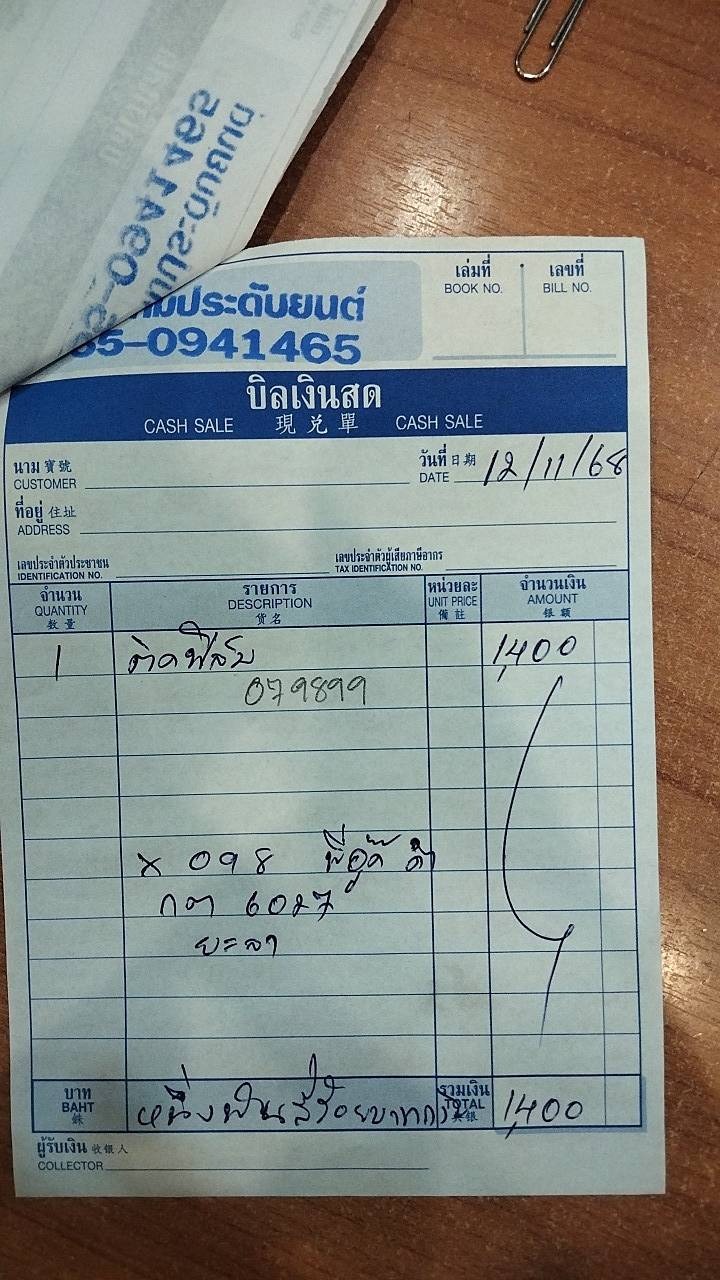 0941465
ประดับยนต์
เล่มที่ เลขที่
BOOK NO. BILL NO.
ประดับยนต์
5-0941465
บิลเงินสด
CASH SALE 現兌單 CASH SALE
นาม 寶號 วันที่ 日期 12/11/68
CUSTOMER DATE
ที่อยู่ 住址
ADDRESS
เลขประจำตัวประชาชน เลขประจำตัวผู้เสียภาษีอากร
IDENTIFICATION NO. TAX IDENTIFICATION NO.
จำนวน รายการ หน่วยละ จำนวนเงิน
QUANTITY DESCRIPTION UNIT PRICE AMOUNT
數量 貨名 備註 銀額
1 ติดฟิล์ม 1,400
079899
x 098
กต 6027
ยะลา
บาท หนึ่งพันสี่ร้อยบาท รวมเงิน 1,400
BAHT TOTAL
銖 共銀
ผู้รับเงิน 收銀人
COLLECTOR